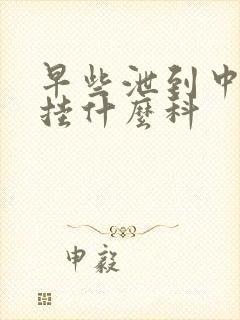 早些泄到中
挂什麼科
申毅